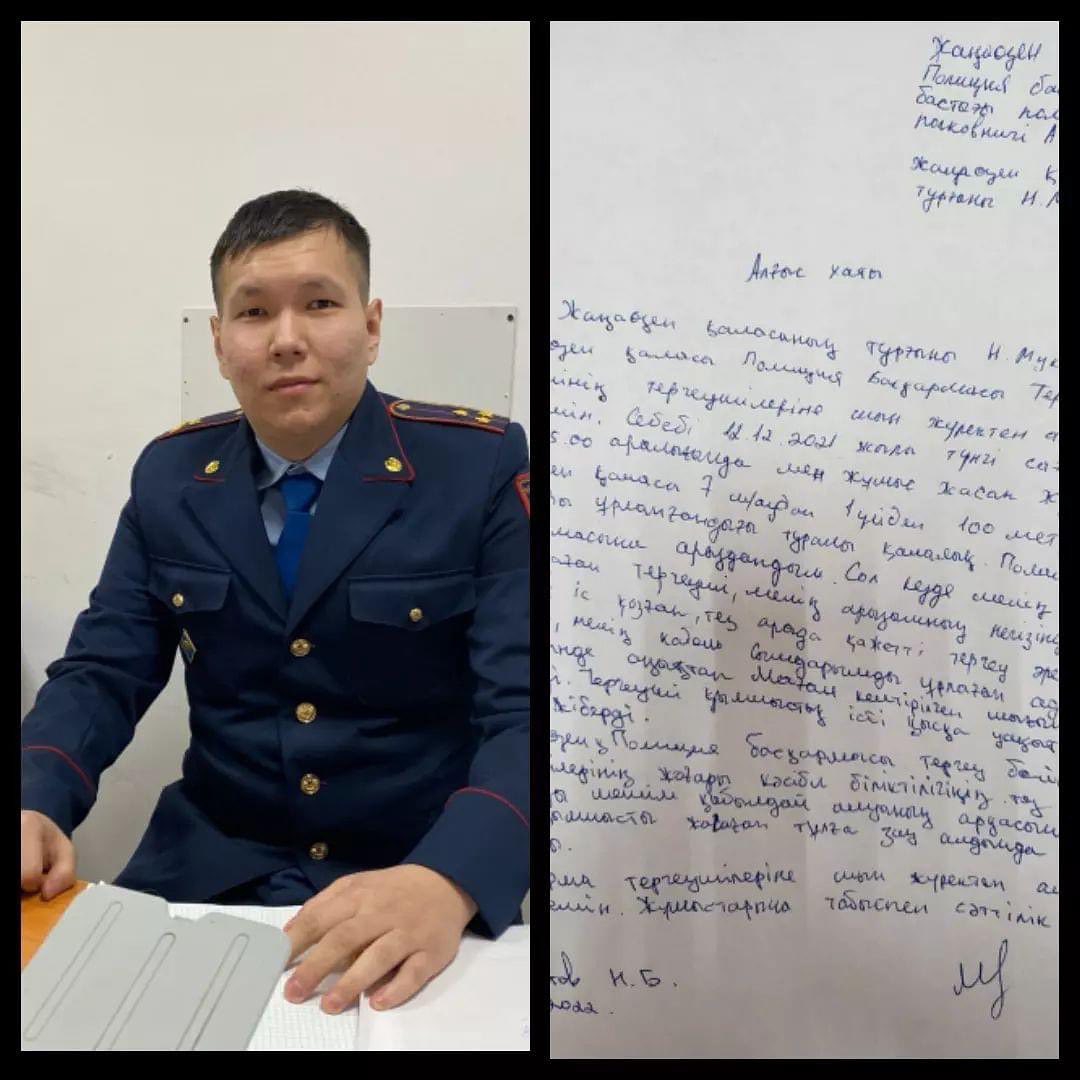 Жаңаөзен
Полиция ба
бастығы пол
полковнигі А
Жаңаөзен қ
тұрғыны Н.М
Алғыс хаты
Жаңаөзен қаласының тұрғыны Н. Мук
өзен қаласы Полиция Басқармасы Тер
інің тергеушілеріне шын жүректен а
мін. Себебі 12.2021 жылы түнгі са
5.00 аралығында мен жұмыс жасап ж
ен қаласы 7 м/ауд 1 үйден 100 мет
ы ұрланғандығы туралы қалалық Поли
масына арыздандым. Сол кезде менің
тергеуші, менің арызымның негізінд
іс қозғап, тез арада қажетті тергеу әре
, менің кабель сымдарымды ұрлаған ад
інде анықтап маған келтірілген шығын
і. Тергеуші қылмыстық істі қысқа уақыт
жіберді.
өзен қ. Полиция басқармасы тергеу бөлі
лерінің жоғары кәсіби біліктілігінің тез
ы шешім қабылдай алуының арқасын
ылмысты жасаған тұлға заң алдында
ы.
рма тергеушілеріне шын жүректен а
емін. Жұмыстарына табыспен сәттілік
ов Н.Б.
2022.